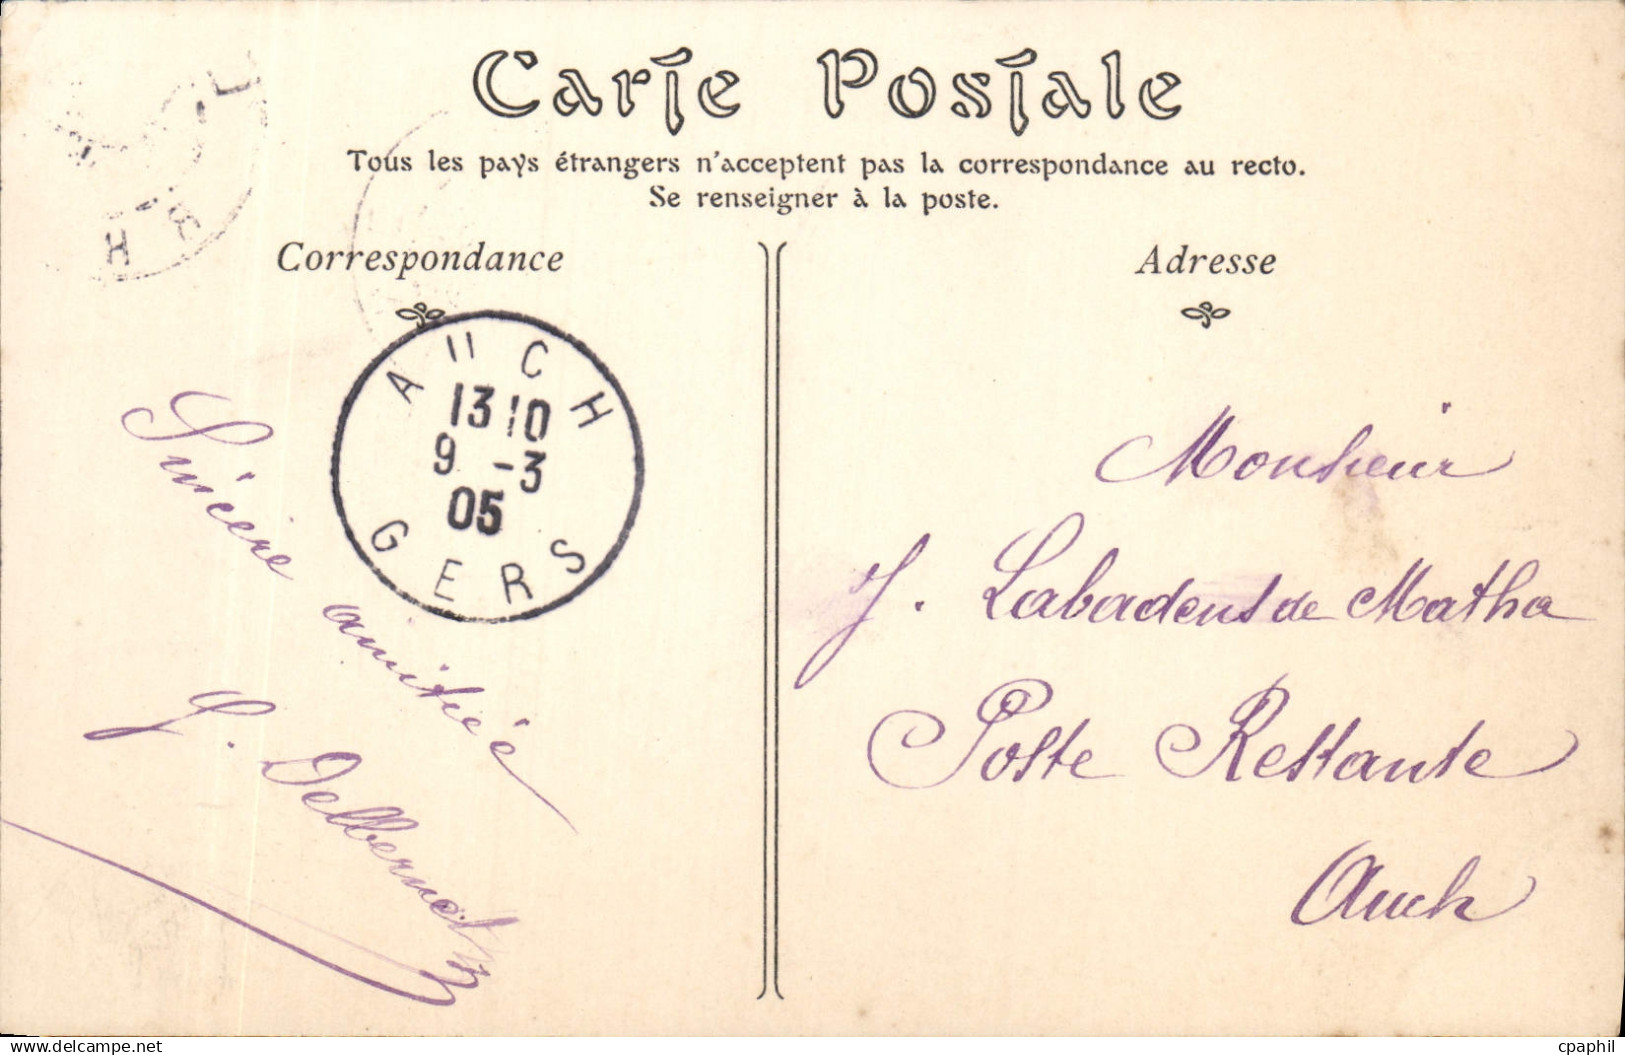 Carte Postale
Tous les pays étrangers n'acceptent pas la correspondance au recto.
Se renseigner à la poste.
Correspondance
Adresse
AUCH
13 10
9 -3
05
GERS
Sincère amitié
Monsieur
J. Labadens de Matha
Poste Restante
Auch
delcampe.net
cpaphil